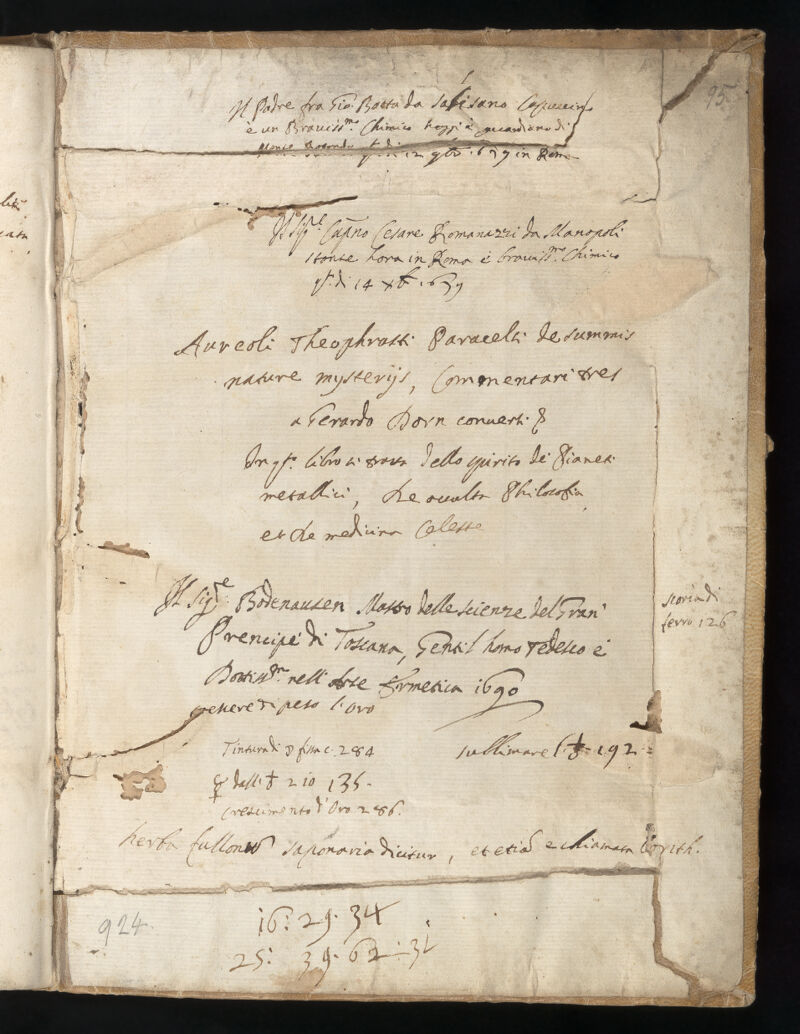 95
Il Padre fra Gio: Batta da Sabisano Capuccino
è un Bravissmo Chimico hoggi è guardiano di
di 12 9bre 1679 in Roma
Il Sigre Capno Cesare Romanazzi da Manopoli
stante hora in Roma è bravissmo Chimico
di 14 Xbre 1679
Aureoli Theophrasti Paracelsi de summis
nature mysterijs, Commentari tres
a Gerardo Dorn conversi &
In qto libro si tratta dello spirito de Pianeti
metallici, de occulta Philosofia
et de medicina Celeste
Il Sigre Bodenausen Mastro delle scienze del Gran
Prencipe di Toscana, Gentil homo Tedesco è
Dottissmo nell' Arte Ermetica 1690
scoria di
ferro 126
venere di peso l'oro
Tintura di ☿ fissa c. 284
sullimare l ♄ 192
☿ dall ♄ 210 135
crescimento d'Oro 286.
herba fullonum saponaria dicitur, et etiã è chiamata borith.
924
16: 29. 34
25: 39. 62: 31